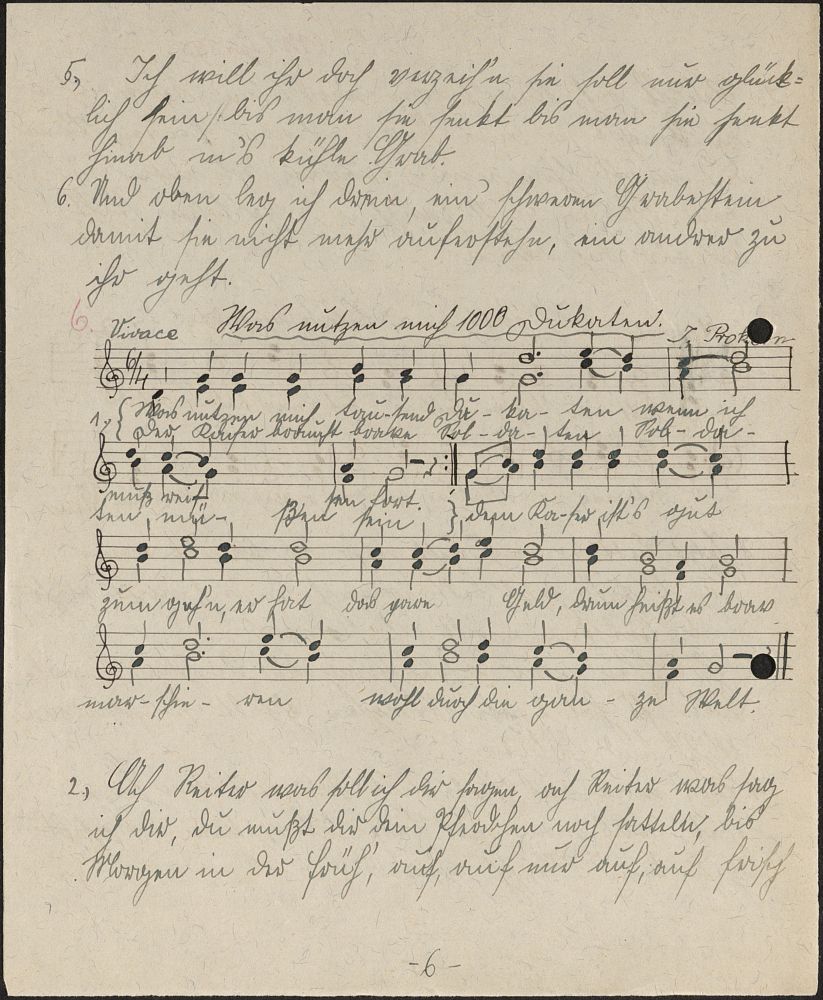 5., Ich will ihr doch verzeih'n sie soll nur glück=
lich sein /: bis man sie senkt bis man sie senkt
hinab in's kühle Grab.
6. Und oben leg ich drein, ein' schweren Grabesstein
damit sie nicht mehr auferstehn, ein andrer zu
ihr geht.
6. Was nutzen mich 1000 Dukaten!
Vivace J. Prok n
6/4
1., { Was nutzen mich tau-send Du-ka-ten wenn ich
Der Kaiser braucht brave Sol-da-ten Sol-da-
muß weit sen fort.
ten mü- ßen sein } dem Kai-ser ist's gut
zum geh'n, er hat das gare Geld, drum heißt es brav
mar-schie-ren wohl durch die gan-ze Welt.
2., Ach Reiter was soll ich dir sagen, ach Reiter was sag
ich dir, du mußt dir dein Pferdchen noch satteln, bis
Morgen in der früh', auf, auf nur auf, auf frisch
-6-